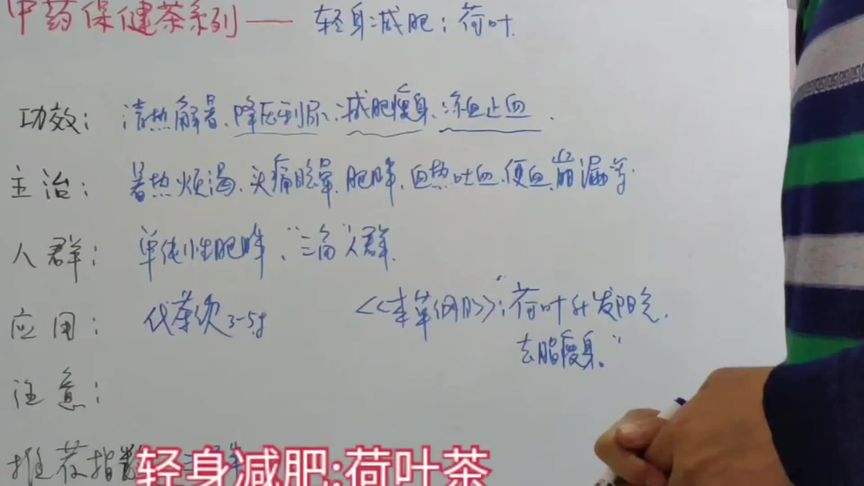 中药保健茶系列—轻身减肥:荷叶
功效:清热解暑、降压利尿、减肥瘦身、凉血止血.
主治:暑热烦渴、头痛眩晕、肥胖、血热吐血、便血、崩漏等
人群:单纯性肥胖、"三高"人群.
应用:代茶饮3-5g 《本草纲目》:"荷叶升发阳气,
去脂瘦身."
注意:
推荐指数
轻身减肥:荷叶茶